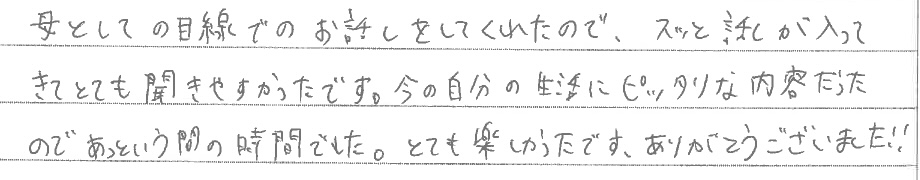 母としての目線でのお話しをしてくれたので、スッと話しが入って
きてとても聞きやすかったです。今の自分の生活にピッタリな内容だった
のであっという間の時間でした。とても楽しかったです、ありがとうございました!!